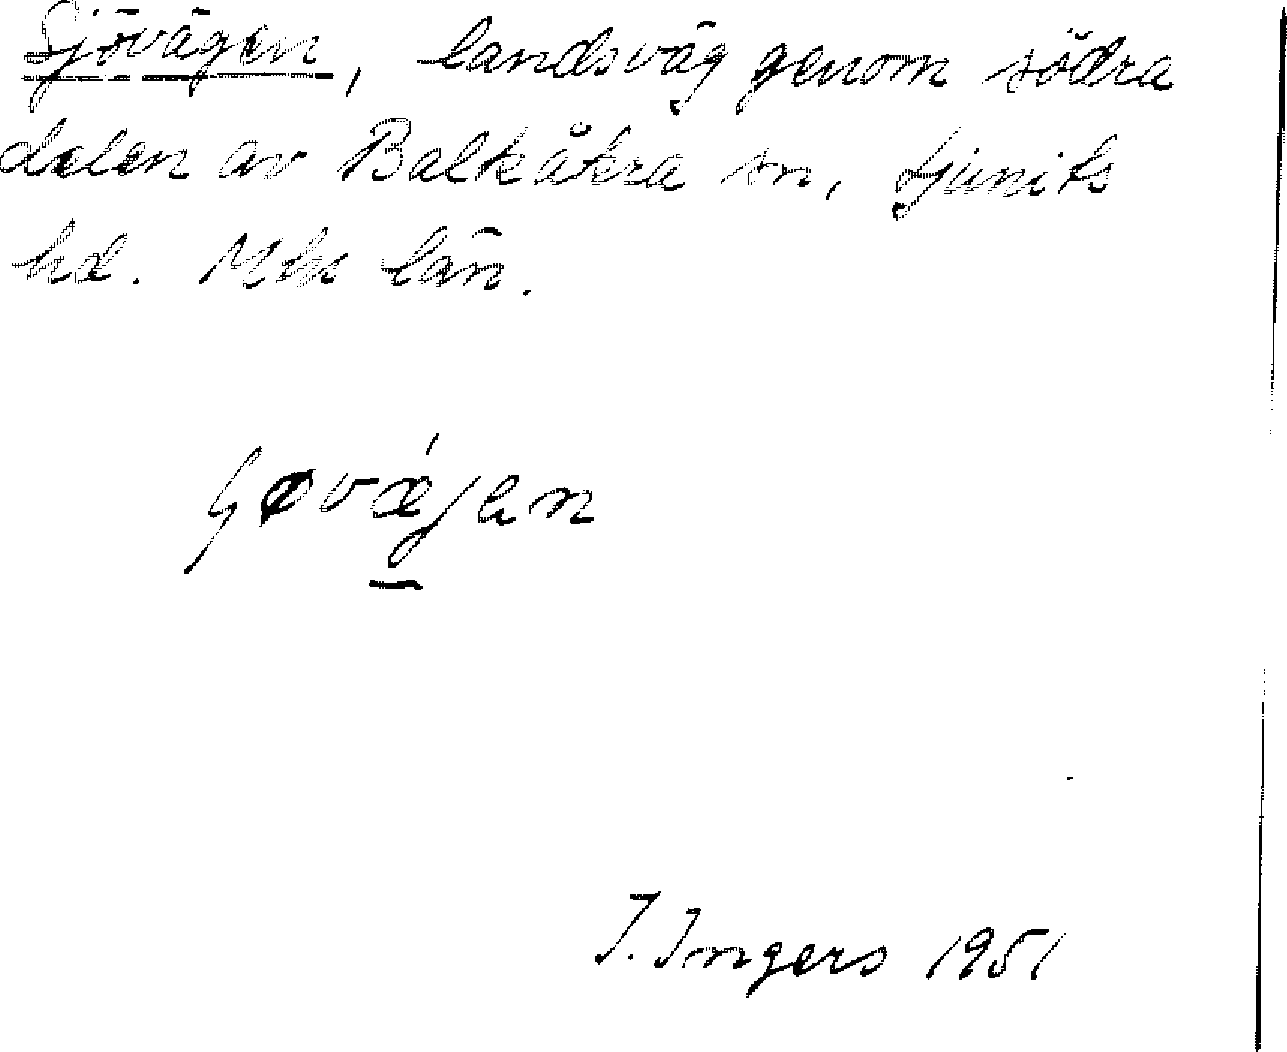 Sjövägen, landsväg genom södra
delen av Balkåkra sn, Ljunits
hd. Mlh län.
ɕøvǽjen
I. Ingers 1951